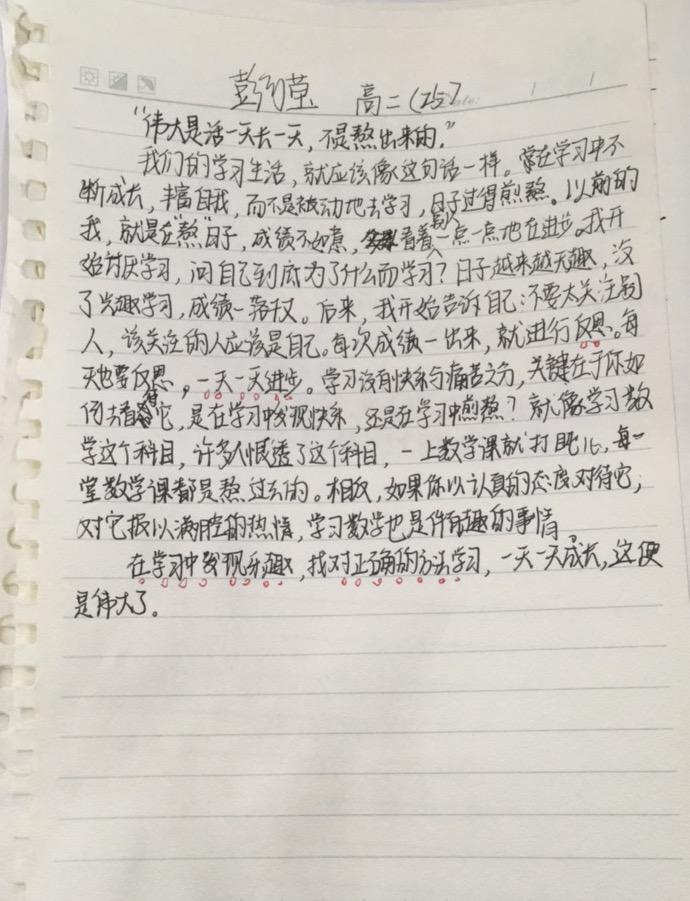 彭 莹 高二(25)
"伟大是活一天长一天，不是熬出来的。"
我们的学习生活，就应该像这句话一样。常在学习中不
断成长，丰富自我，而不是被动地去学习，日子过得煎熬。以前的
我，就是在"熬"日子，成绩不如意，看着别人一点一点地在进步。我开
始讨厌学习，问自己到底为了什么而学习？日子越来越无趣，没
了兴趣学习，成绩一路下又。后来，我开始告诉自己：不要太关注别
人，该关注的人应该是自己。每次成绩一出来，就进行反思。每
天也要反思，一天一天进步。学习没有快乐与痛苦之分，关键在于你如
何去看待它，是在学习中发现快乐，还是在学习中煎熬？就像学习数
学这个科目，许多人恨透了这个科目，一上数学课就打瞌儿，每一
堂数学课都是熬过去的。相反，如果你以认真的态度对待它，
对它报以满腔的热情，学习数学也是件有趣的事情。
在学习中发现乐趣，找对正确的方法学习，一天一天成长，这便
是伟大了。